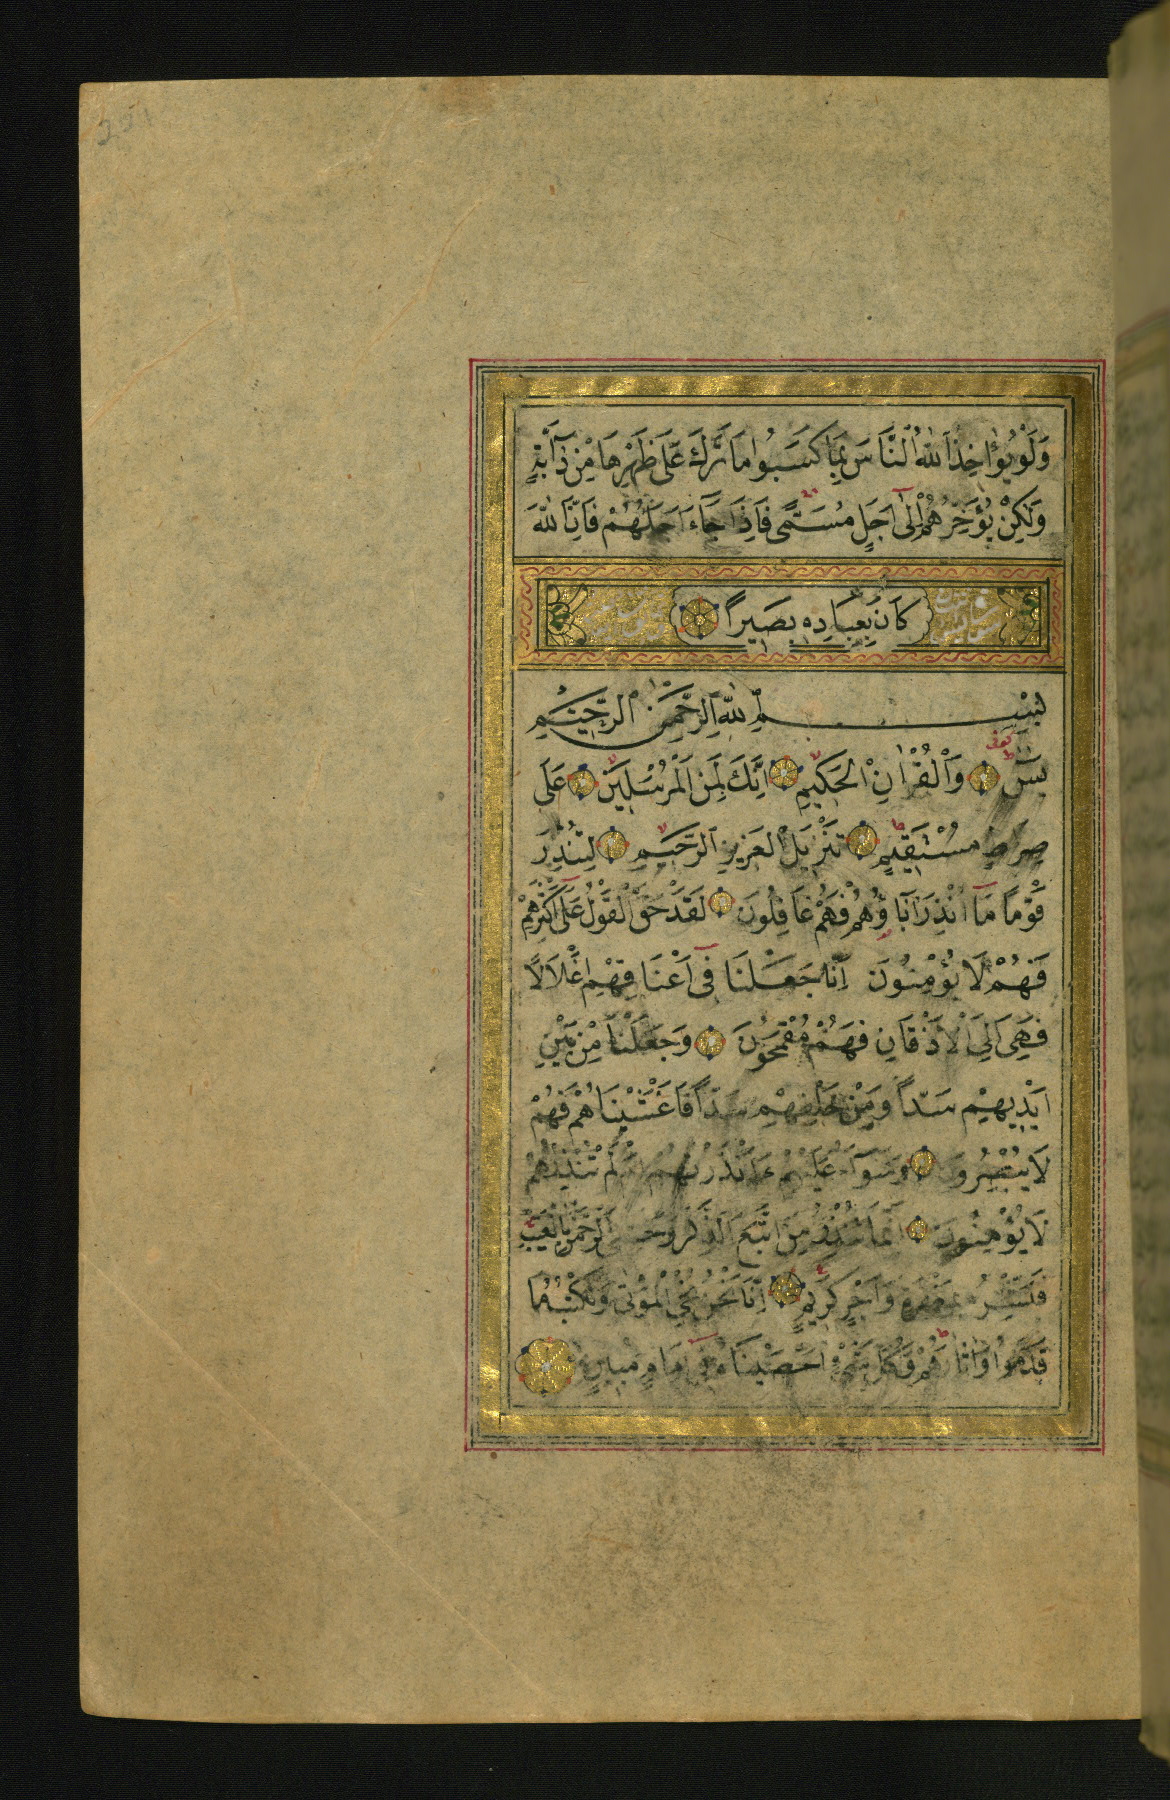 221
وَلَوْ يُؤَاخِذُ اللّٰهُ النَّاسَ بِمَا كَسَبُوا مَا تَرَكَ عَلٰى ظَهْرِهَا مِنْ دَٓابَّةٍ
وَلٰكِنْ يُؤَخِّرُهُمْ اِلٰٓى اَجَلٍ مُسَمًّى فَاِذَا جَٓاءَ اَجَلُهُمْ فَاِنَّ اللّٰهَ
كَانَ بِعِبَادِهِ بَصِيراً
بِسْمِ اللّٰهِ الرَّحْمٰنِ الرَّحِيمِ
يٰسٓ وَالْقُرْاٰنِ الْحَكِيمِ اِنَّكَ لَمِنَ الْمُرْسَلِينَ عَلٰى
صِرَاطٍ مُسْتَقِيمٍ تَنْزِيلَ الْعَزِيزِ الرَّحِيمِ لِتُنْذِرَ
قَوْماً مَٓا اُنْذِرَ اٰبَاؤُهُمْ فَهُمْ غَافِلُونَ لَقَدْ حَقَّ الْقَوْلُ عَلٰٓى اَكْثَرِهِمْ
فَهُمْ لَا يُؤْمِنُونَ اِنَّا جَعَلْنَا فِٓى اَعْنَاقِهِمْ اَغْلَالًا
فَهِىَ اِلَى الْاَذْقَانِ فَهُمْ مُقْمَحُونَ وَجَعَلْنَا مِنْ بَيْنِ
اَيْدِيهِمْ سَدّاً وَمِنْ خَلْفِهِمْ سَدّاً فَاَغْشَيْنَاهُمْ فَهُمْ
لَا يُبْصِرُونَ وَسَوَٓاءٌ عَلَيْهِمْ ءَاَنْذَرْتَهُمْ اَمْ لَمْ تُنْذِرْهُمْ
لَا يُؤْمِنُونَ اِنَّمَا تُنْذِرُ مَنِ اتَّبَعَ الذِّكْرَ وَخَشِىَ الرَّحْمٰنَ بِالْغَيْبِ
فَبَشِّرْهُ بِمَغْفِرَةٍ وَاَجْرٍ كَرِيمٍ اِنَّا نَحْنُ نُحْىِ الْمَوْتٰى وَنَكْتُبُ مَا
قَدَّمُوا وَاٰثَارَهُمْ وَكُلَّ شَىْءٍ اَحْصَيْنَاهُ فِٓى اِمَامٍ مُبِينٍ